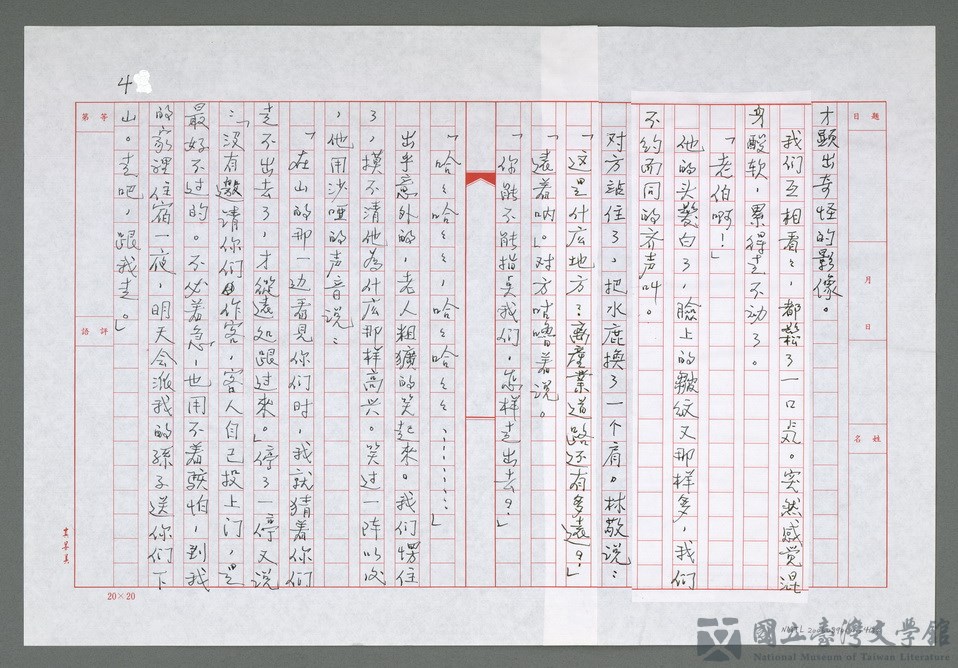 4
題目
月
日
姓名
才顕出奇怪的影像。
我们互相看々，都鬆了一口气。突然感覚混
身酸软，累得走不动了。
「老伯啊！」
他的头髮白了，臉上的皺紋又那样多，我们
不約而同的齐声叫。
对方站住了，把水鹿換了一个肩。林敬说：
「这是什広地方？离産業道路还有多遠？」
「遠着呐。」对方啃嚼着说。
「你能不能指点我们，怎样走出去？」
「哈々哈々々，哈々哈々々………」
出乎意外的，老人粗獷的笑起來。我们愣住
了，摸不清他為什広那样高兴。笑过一阵以后
，他用沙哑的声音说：
「在山的那一边看見你们时，我就猜着你们
走不出去了，才從遠処跟过來。」停了一停又说
：「没有邀请你们作客，客人自己投上门，是
最好不过的。不必着急，也用不着駭怕，到我
的家裡住宿一夜，明天会派我的孫子送你们下
山。走吧，跟我走。」
等第
評語
20×20
國立臺灣文學館
National Museum of Taiwan Literature